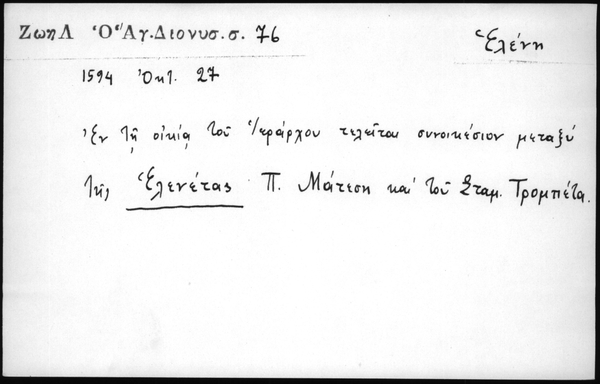 Ζωη Λ Ὁ Ἅγ. Διονυσ. σ. 76
Ἑλένη
1594 Ὀκτ. 27
Ἐν τῇ οἰκίᾳ τοῦ Ἱεράρχου τελεῖται συνοικέσιον μεταξύ
τῆς Ἑλενέτας Π. Μάτεση καί τοῦ Σταμ. Τρομπέτα.